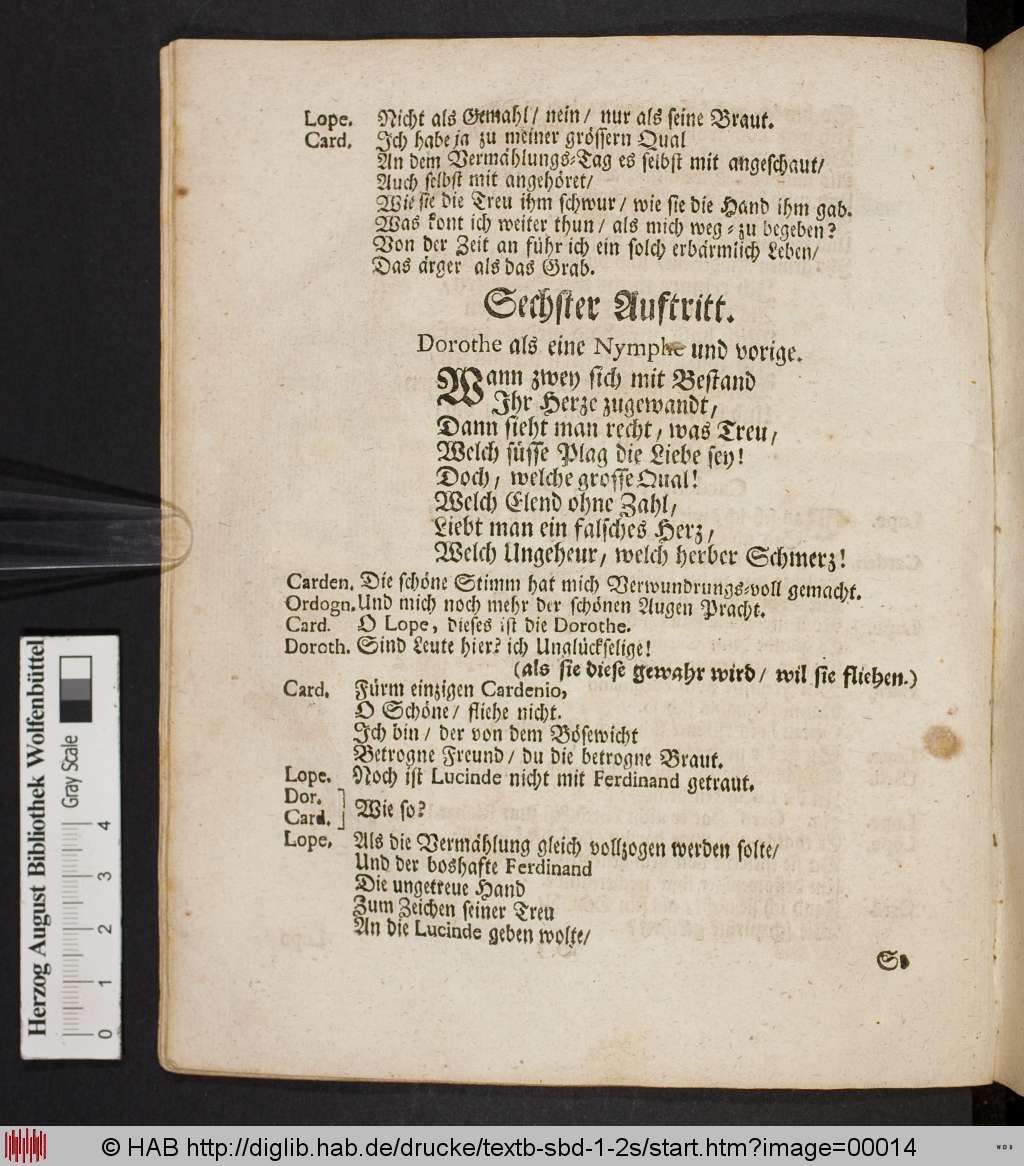 Lope. Nicht als Gemahl / nein / nur als seine Braut.
Card. Ich habe ja zu meiner grössern Qual
An dem Vermählungs-Tag es selbst mit angeschaut /
Auch selbst mit angehöret /
Wie sie die Treu ihm schwur / wie sie die Hand ihm gab.
Was kont ich weiter thun / als mich weg-zu begeben?
Von der Zeit an führ ich ein solch erbärmlich Leben /
Das ärger als das Grab.
Sechster Auftritt.
Dorothe als eine Nymphe und vorige.
Wann zwey sich mit Bestand
Ihr Herze zugewandt,
Dann sieht man recht, was Treu,
Welch süsse Plag die Liebe sey!
Doch, welche grosse Qual!
Welch Elend ohne Zahl,
Liebt man ein falsches Herz,
Welch Ungeheur, welch herber Schmerz!
Carden. Die schöne Stimm hat mich Verwundrungs-voll gemacht.
Ordogn. Und mich noch mehr der schönen Augen Pracht.
Card. O Lope, dieses ist die Dorothe.
Doroth. Sind Leute hier? ich Unglückselige!
(als sie diese gewahr wird / wil sie fliehen.)
Card. Fürm einzigen Cardenio,
O Schöne / fliehe nicht.
Ich bin / der von dem Bösewicht
Betrogne Freund / du die betrogne Braut.
Lope. Noch ist Lucinde nicht mit Ferdinand getraut.
Dor.
Card. ] Wie so?
Lope. Als die Vermählung gleich vollzogen werden solte /
Und der boshafte Ferdinand
Die ungetreue Hand
Zum Zeichen seiner Treu
An die Lucinde geben wolte /
Herzog August Bibliothek Wolfenbüttel
Gray Scale
0 1 2 3 4
© HAB http://diglib.hab.de/drucke/textb-sbd-1-2s/start.htm?image=00014